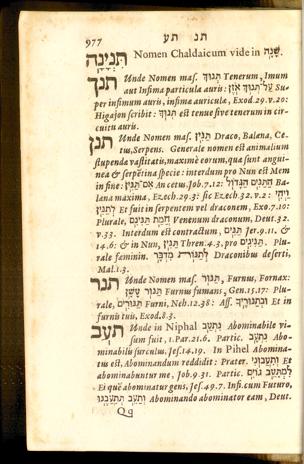 977 תנ תע
תִּנְיָנָה Nomen Chaldaicum vide in שָׁנָה.
תנך Unde Nomen mas. תְּנוּךְ Tenerum, Imum
aut Infima particula auris: עַל־תְּנוּךְ אֹזֶן Su-
per infimum auris, infima auricula, Exod. 29. v. 20:
Higajon scribit: תְּנוּךְ est tenue sive tenerum in cir-
cuitu auris.
תנן Unde Nomen mas. תַּנִּין, Draco, Balæna, Ce-
tus, Serpens. Generale nomen est animalium
stupenda vastitatis, maximè eorum, quæ sunt angui-
nea & serpetina specie: interdum pro Nun est Mem
in fine: אִם־תַּנִּין An cetus, Job. 7. 12: הַתַּנִּים הַגָּדוֹל Ba-
læna maxima, Ezech. 29. 3: sic Ezech. 32. v. 2: וַיְהִי
לְתַנִּין Et fuit in serpentem vel draconem, Exo. 7. 10:
Plurale, תַּנִּינִם Venenum draconum, Deut. 32.
v. 33. Interdum est contractum, תַּנִּים Jer. 9. 11. &
14. 6: & in Nun, תַּנִּין Thren. 4. 3, pro תַּנִּינִים. Plu-
rale fæminin. לְתַנּוֹת מִדְבָּר Draconibus deserti,
Mal. 1. 3.
תנר Unde Nomen mas. תַּנּוּר, Furnus, Fornax:
תַּנּוּר עָשָׁן Furnus fumans, Gen. 15. 17: Plu-
rale, תַּנּוּרִים Furni, Neh. 12. 38: Aff. וּבְתַנּוּרֶיךָ Et in
furnis tuis, Exod. 8. 3.
תעב Unde in Niphal נִתְעָב Abominabile vi-
sum fuit, 1. Par. 21. 6. Partic. נִתְעָב Abo-
minabilis surculus, Jes. 14. 19. In Pihel Abomina-
tus est, Abominandum reddidit: Præter. וְתִעֲבוּנִי Et
abominabuntur me, Job. 9. 31. Partic. לִמְתָעֵב גּוֹי
Et quē abominatur gens, Jes. 49. 7. Infi. cum Futuro,
וְתַעֵב תְּתַעֲבֶנּוּ Abominando abominator eam, Deut.
Qq